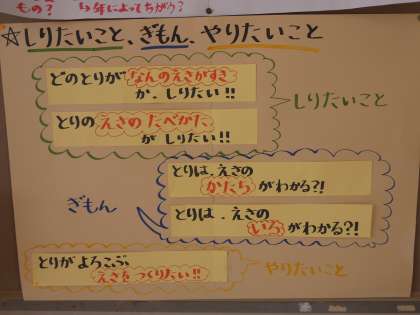 もの?
年によってちがう?
☆しりたいこと、ぎもん、やりたいこと
どのとりが なんのえさがすき
か、しりたい!!
しりたいこと
とりの えさの たべかた
が しりたい!!
とりは、えさの
かたち がわかる?!
ぎもん
とりは、えさの
いろ がわかる?!
とりが よろこぶ
えさを つくりたい!!
やりたいこと